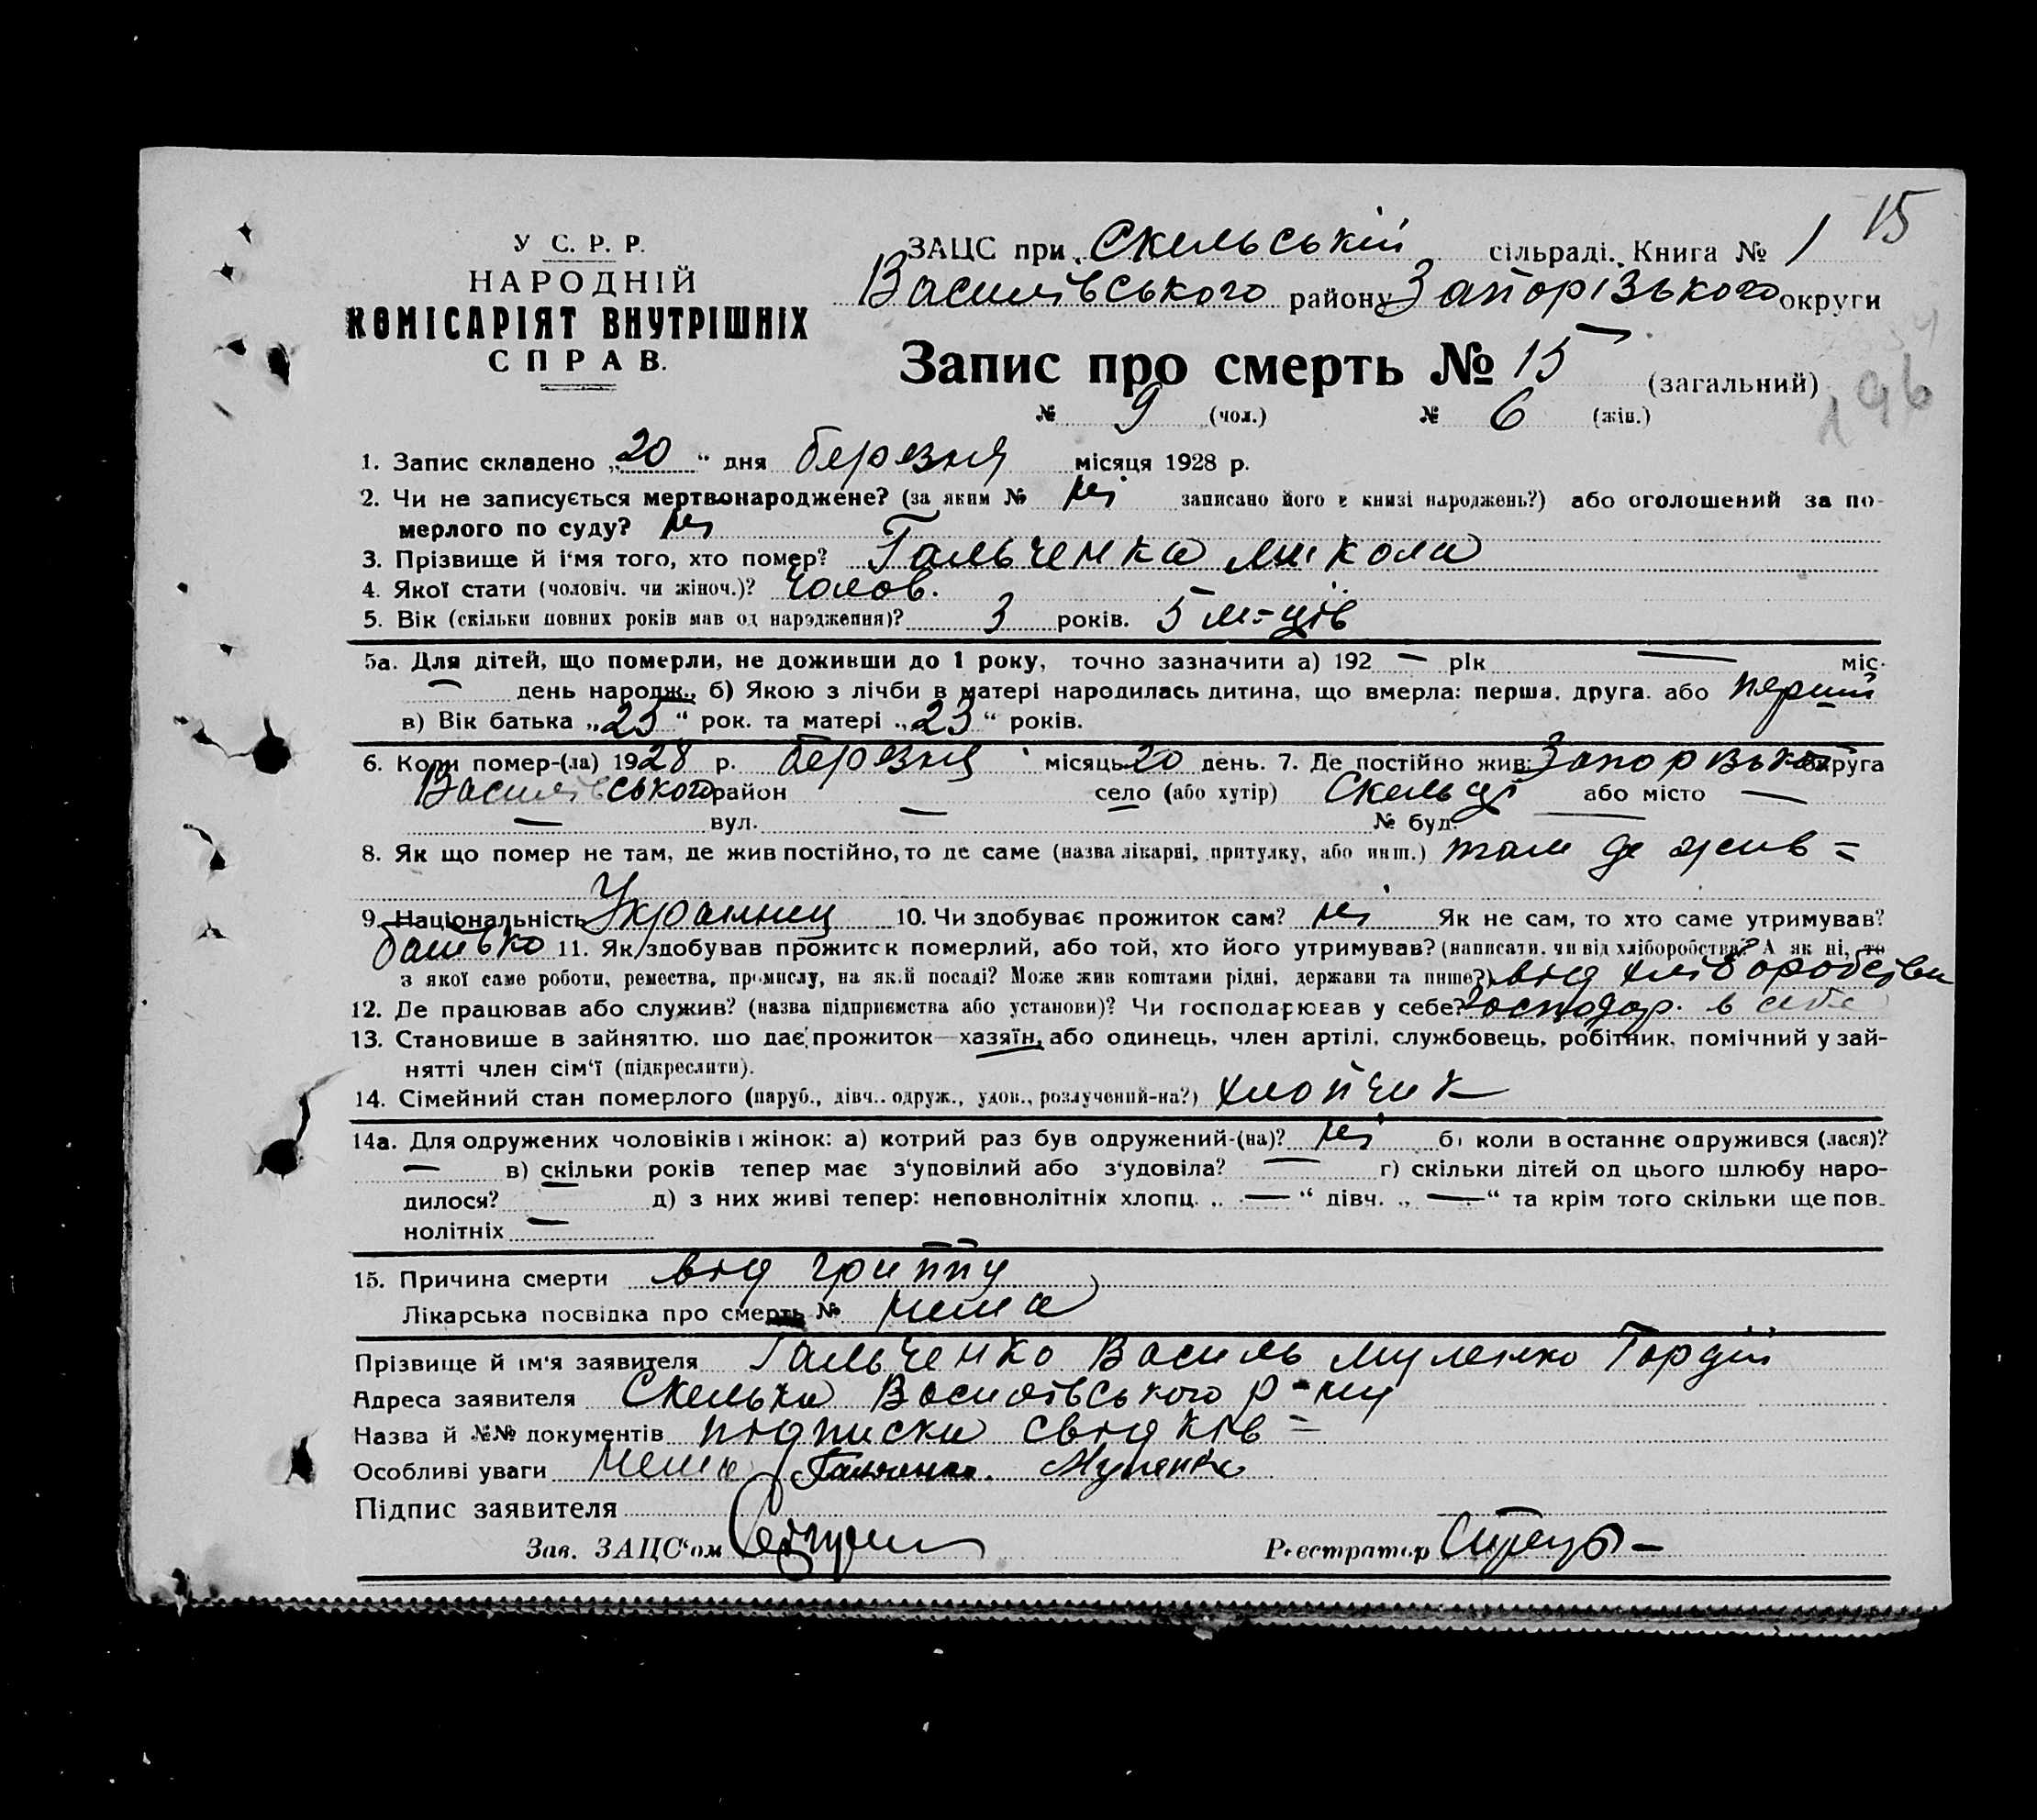 15
У С. Р. Р.
НАРОДНІЙ
КОМІСАРІЯТ ВНУТРІШНІХ
СПРАВ.
ЗАЦС при Скельській сільраді. Книга № 1
Василівського району Запорізького округи
Запис про смерть № 15 (загальний)
196
№ 9 (чол.) № 6 (жін.)
1. Запис складено „20“ дня березня місяця 1928 р.
2. Чи не записується мертвонароджене? (за яким № ні записано його в книзі народжень?) або оголошений за по-
мерлого по суду? ні
3. Прізвище й і'мя того, хто помер? Гальченка Микола
4. Якої стати (чоловіч. чи жіноч.)? Чолов.
5. Вік (скільки повних років мав од народження)? 3 років. 5 м-ців
5а. Для дітей, що померли, не доживши до 1 року, точно зазначити а) 192 — рік — міс.
— день народж., б) Якою з лічби в матері народилась дитина, що вмерла: перша, друга. або перший
в) Вік батька „23“ рок. та матері „23“ років.
6. Коли помер-(ла) 1928 р. березня місяць 20 день. 7. Де постійно жив: округа
Василівського район село (або хутір) Скельці або місто —
— вул. — № буд. —
8. Як що помер не там, де жив постійно, то де саме (назва лікарні, притулку, або инш.) там де жив =
9. Національність Українец 10. Чи здобуває прожиток сам? ні Як не сам, то хто саме утримував?
батько 11. Як здобував прожиток померлий, або той, хто його утримував? (написати, чи від хліборобства? А як ні, то
з якої саме роботи, ремества, промислу, на якій посаді? Може жив коштами рідні, держави та инше?) від хліборобства
12. Де працював або служив? (назва підприємства або установи)? Чи господарював у себе? господар. в себе
13. Становише в зайняттю, що дає прожиток—хазяїн, або одинець, член артілі, службовець, робітник, помічний у зай-
нятті член сім'ї (підкреслити).
14. Сімейний стан померлого (паруб., дівч.. одруж., удов., розлучений-на?) хлопчик
14а. Для одружених чоловіків і жінок: а) котрий раз був одружений-(на)? ні б) коли в останнє одружився (лася)?
— в) скільки років тепер має з'уповілий або з'удовіла? — г) скільки дітей од цього шлюбу наро-
дилося? — д) з них живі тепер: неповнолітніх хлопц. „ — “ дівч. „ — “ та крім того скільки ще пов-
нолітніх —
15. Причина смерти від гриппу
Лікарська посвідка про смерть № нема
Прізвище й ім'я заявителя Гальченко Василь Муленко Гордій
Адреса заявителя Скелька Василівського р-ну
Назва й №№ документів підписка свідків =
Особливі уваги Нема Гальченко. Муленко
Підпис заявителя
Зав. ЗАЦС'ом
Реєстратор